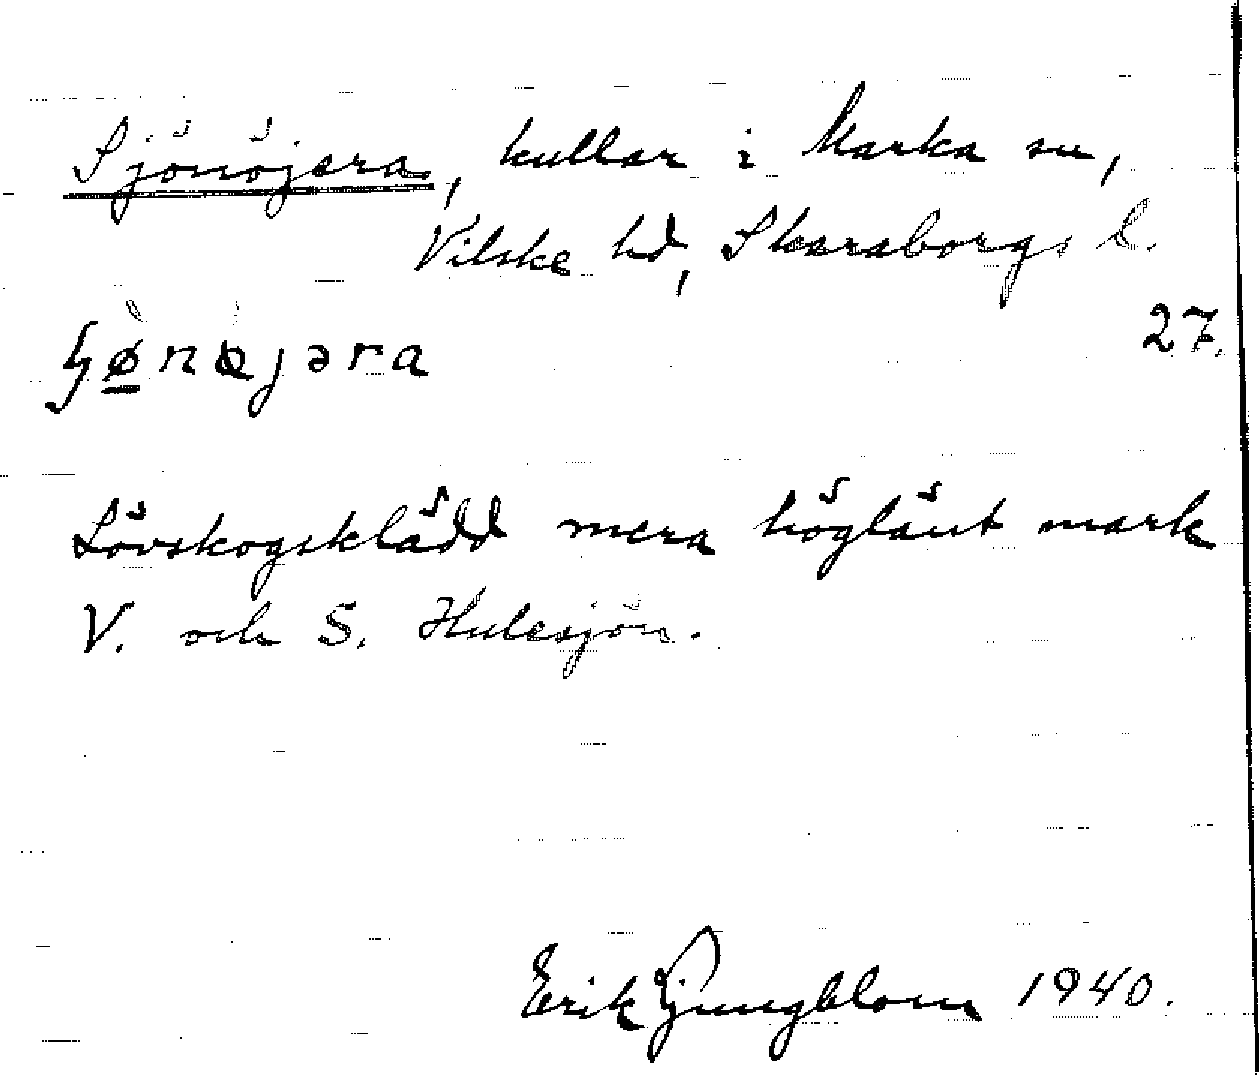 Sjönöjera, kullar i Marka sn,
Vilske hd, Skaraborgs l.
27.
ɧø̀nø̀jəra
Lövskogsklädd mera höglänt mark
V. och S. Hulesjön.
Erik Ljungblom 1940.